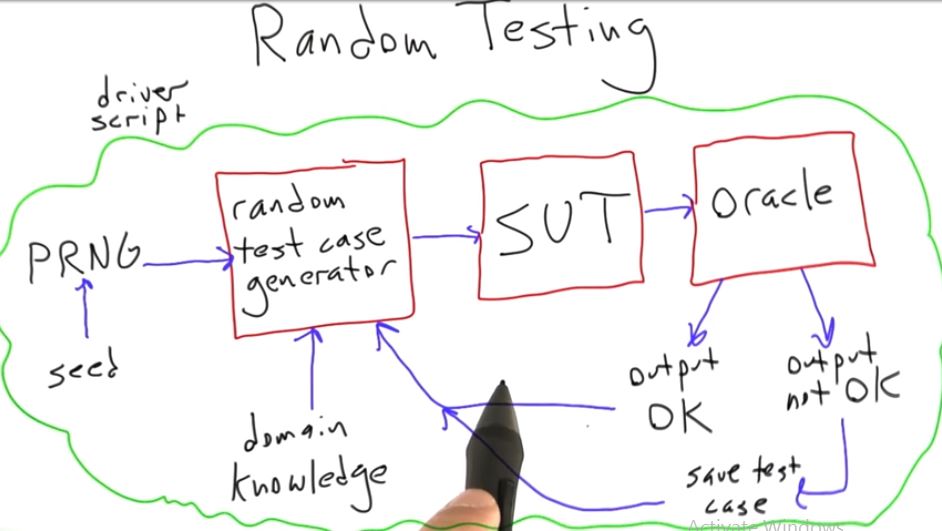 Random Testing
driver
script
PRNG
seed
random
test case
generator
domain
knowledge
SUT
oracle
output
OK
output
not OK
save test
case
Activate Windows